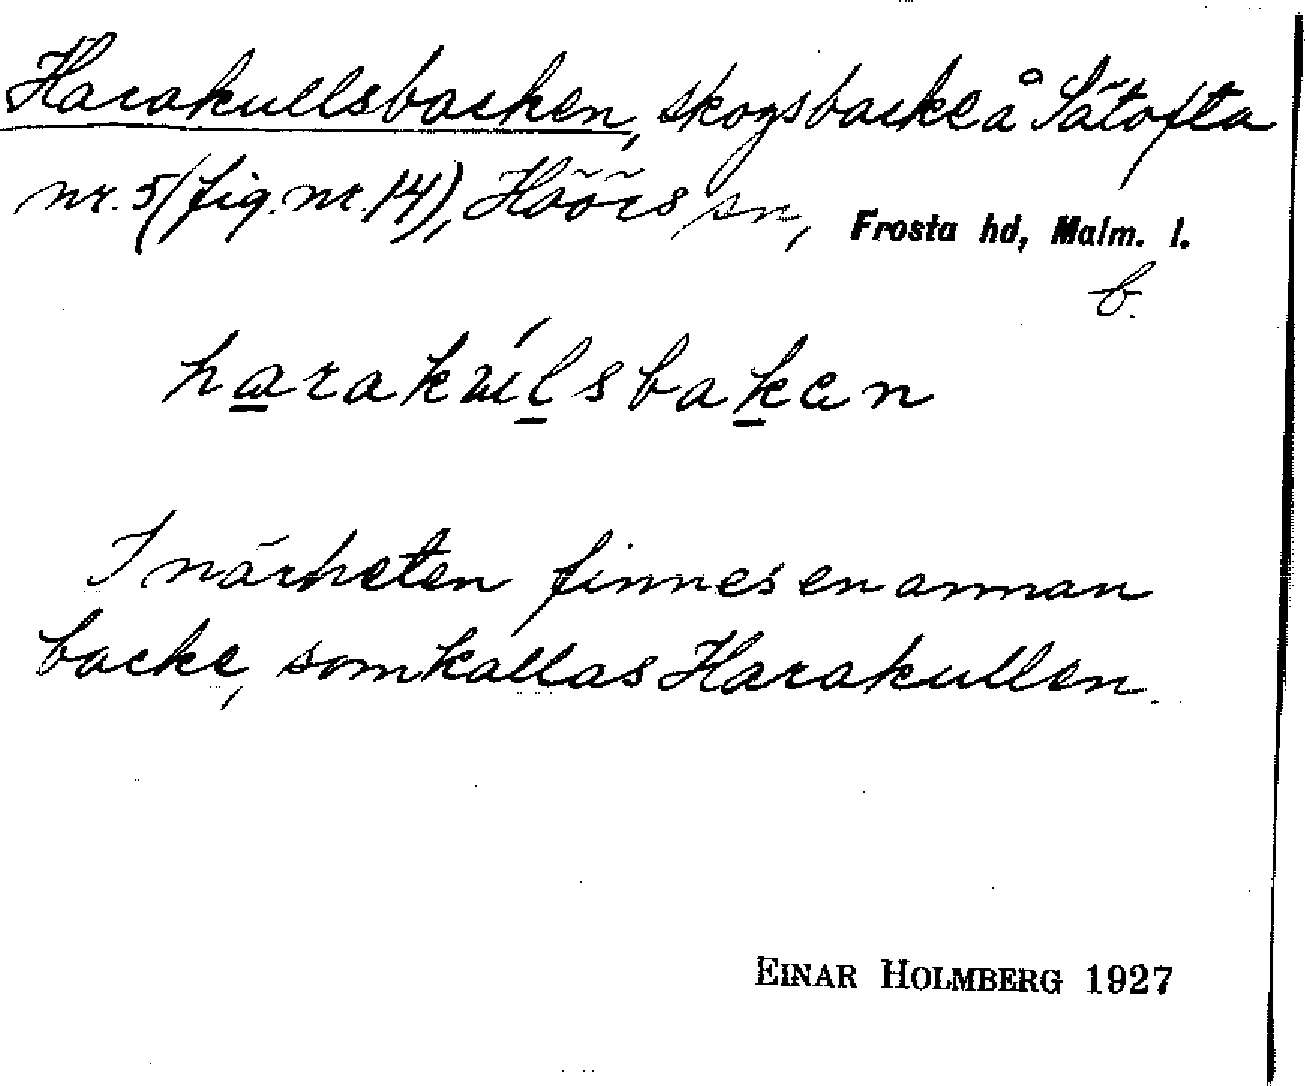 Harakullsbacken, skogsbacke å Sätofta
nr. 5 (fig. nr. 14), Höörs sn, Frosta hd, Malm. l.
b.
harakulsbaken
I närheten finnes en annan
backe, som kallas Harakullen.
EINAR HOLMBERG 1927